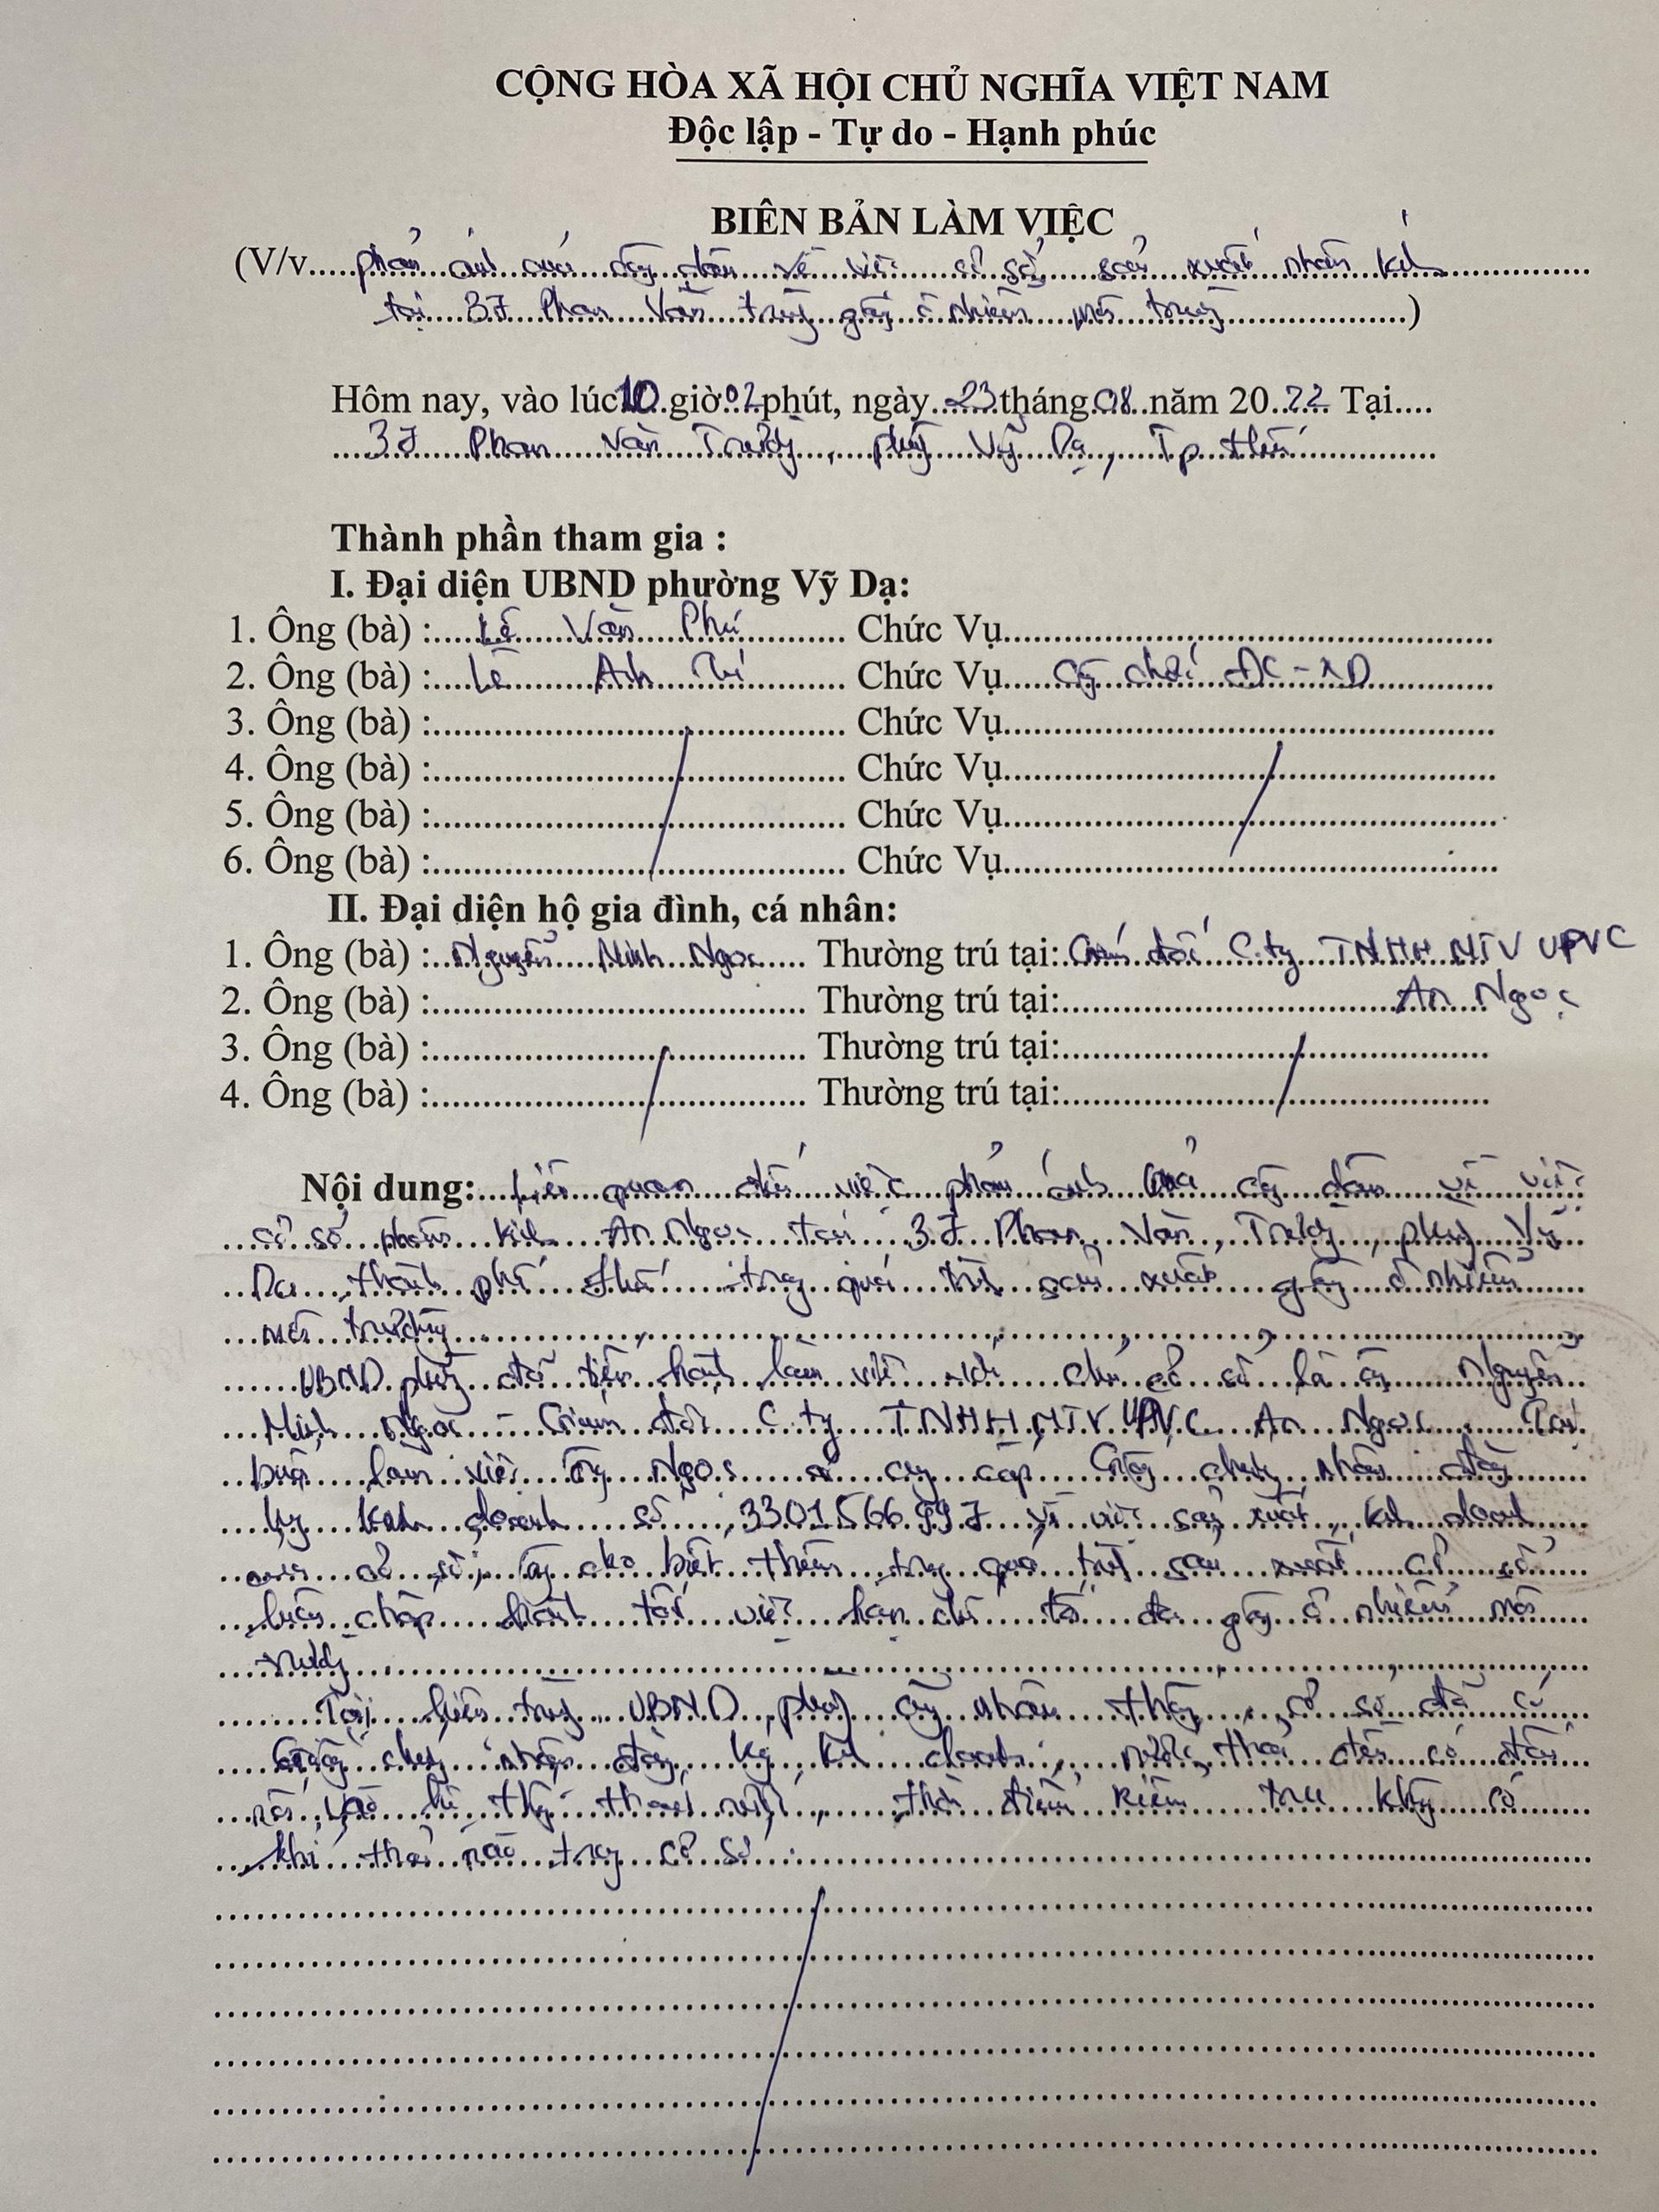 CỘNG HÒA XÃ HỘI CHỦ NGHĨA VIỆT NAM
Độc lập - Tự do - Hạnh phúc
BIÊN BẢN LÀM VIỆC
(V/v.....phản ánh của công dân về việc cơ sở sản xuất nhôm kính
tại 37 Phan Văn trường gây ô nhiễm môi trường)
Hôm nay, vào lúc 10 giờ 02 phút, ngày 23 tháng 08 năm 2022 Tại....
37 Phan Văn Trường, phường Vỹ Dạ, Tp Huế
Thành phần tham gia :
I. Đại diện UBND phường Vỹ Dạ:
1. Ông (bà) : Lê Văn Phú Chức Vụ
2. Ông (bà) : Lê Anh Chức Vụ Công chức ĐC-XD
3. Ông (bà) : Chức Vụ
4. Ông (bà) : Chức Vụ
5. Ông (bà) : Chức Vụ
6. Ông (bà) : Chức Vụ
II. Đại diện hộ gia đình, cá nhân:
1. Ông (bà) : Nguyễn Minh Ngọc Thường trú tại: Giám đốc C.ty TNHH MTV UPVC
2. Ông (bà) : Thường trú tại: An Ngọc
3. Ông (bà) : Thường trú tại:
4. Ông (bà) : Thường trú tại:
Nội dung: Liên quan đến việc phản ánh của công dân về việc
cơ sở nhôm kính An Ngọc tại 37 Phan Văn Trường, phường Vỹ
Dạ, thành phố Huế trong quá trình sản xuất gây ô nhiễm
môi trường
UBND phường đã tiến hành làm việc với chủ cơ sở là ông Nguyễn
Minh Ngọc - Giám đốc C.ty TNHH MTV UPVC An Ngọc. Tại
buổi làm việc ông Ngọc cung cấp Giấy chứng nhận đăng
ký kinh doanh số 3301566997 về việc sản xuất, kinh doanh
của cơ sở, ông cho biết thêm trong quá trình sản xuất cơ sở
luôn chấp hành tốt việc hạn chế tối đa gây ô nhiễm môi
trường
Tại hiện trường UBND phường nhận thấy, cơ sở đã có
Giấy chứng nhận đăng ký kinh doanh, nước thải đều có đấu
nối vào hệ thống thoát nước, thời điểm kiểm tra không có
khí thải nào trong cơ sở.